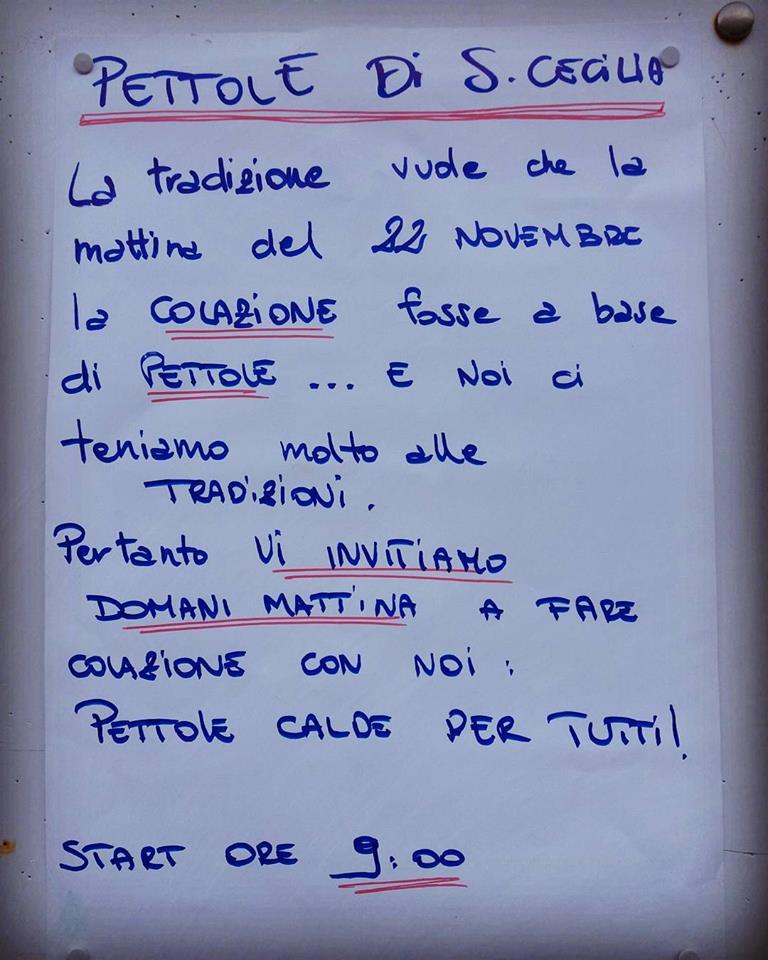 PETTOLE Di S. CECiLIA
La tradizione vuole che la
mattina del 22 NOVEMBRE
la COLAZiONE fosse a base
di PETTOLE ... E Noi ci
teniamo molto alle
TRADiZiONi.
Pertanto Vi INVITiAMO
DOMANI MATTiNA A FARE
COLAZiONE CON NOi:
PETTOLE CALDE PER TUTTi!
START ORE 9:00